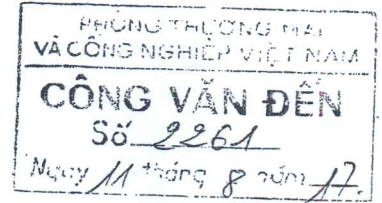 PHÒNG THƯƠNG MẠI
VÀ CÔNG NGHIỆP VIỆT NAM
CÔNG VĂN ĐẾN
Số 2261
Ngày 11 tháng 8 năm 17.